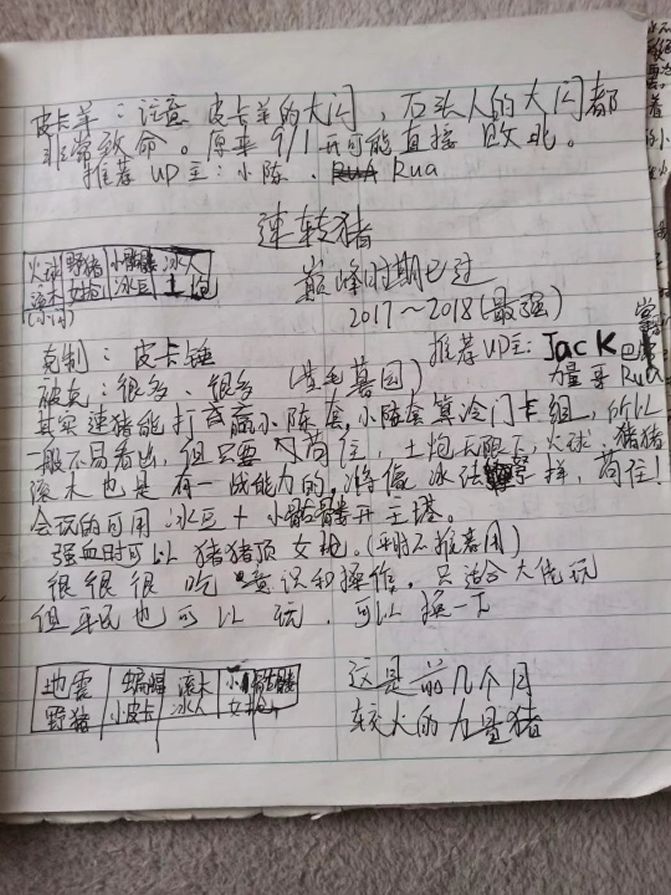 皮卡羊：注意 皮卡羊的大闪，石头人的大闪都
非常致命。原来 9/1开可能直接 败北。
推荐 UP主：小陈、Rua
速转猪
火球 野猪 小骷髅 冰人
滚木 女枪 冰豆 土炮
(小闪)
巅峰时期已过
2017～2018(最强)
克制：皮卡锤
推荐UP主：Jack
被克：很多、很多 (
墓园)
力量哥 Rua
其实 速猪能打
赢小陈套，小陈套算冷门卡组，所以
一般不易看出，但只要
荷住，土炮无限下，火球、猪猪
滚木也是 有一战能力的，
冰法
一样，苟住！
会玩的可用 冰豆＋小骷髅开主塔。
强血时可以 猪猪顶 女枪。(平时不推荐用)
很 很 很 吃 意识和操作，只适合大佬玩
但 平民 也可以 玩，可以 换一下
地震 蝙蝠 滚木 小骷髅
野猪 小皮卡 冰人 女枪
这是 前几个月
较火的 力量猪